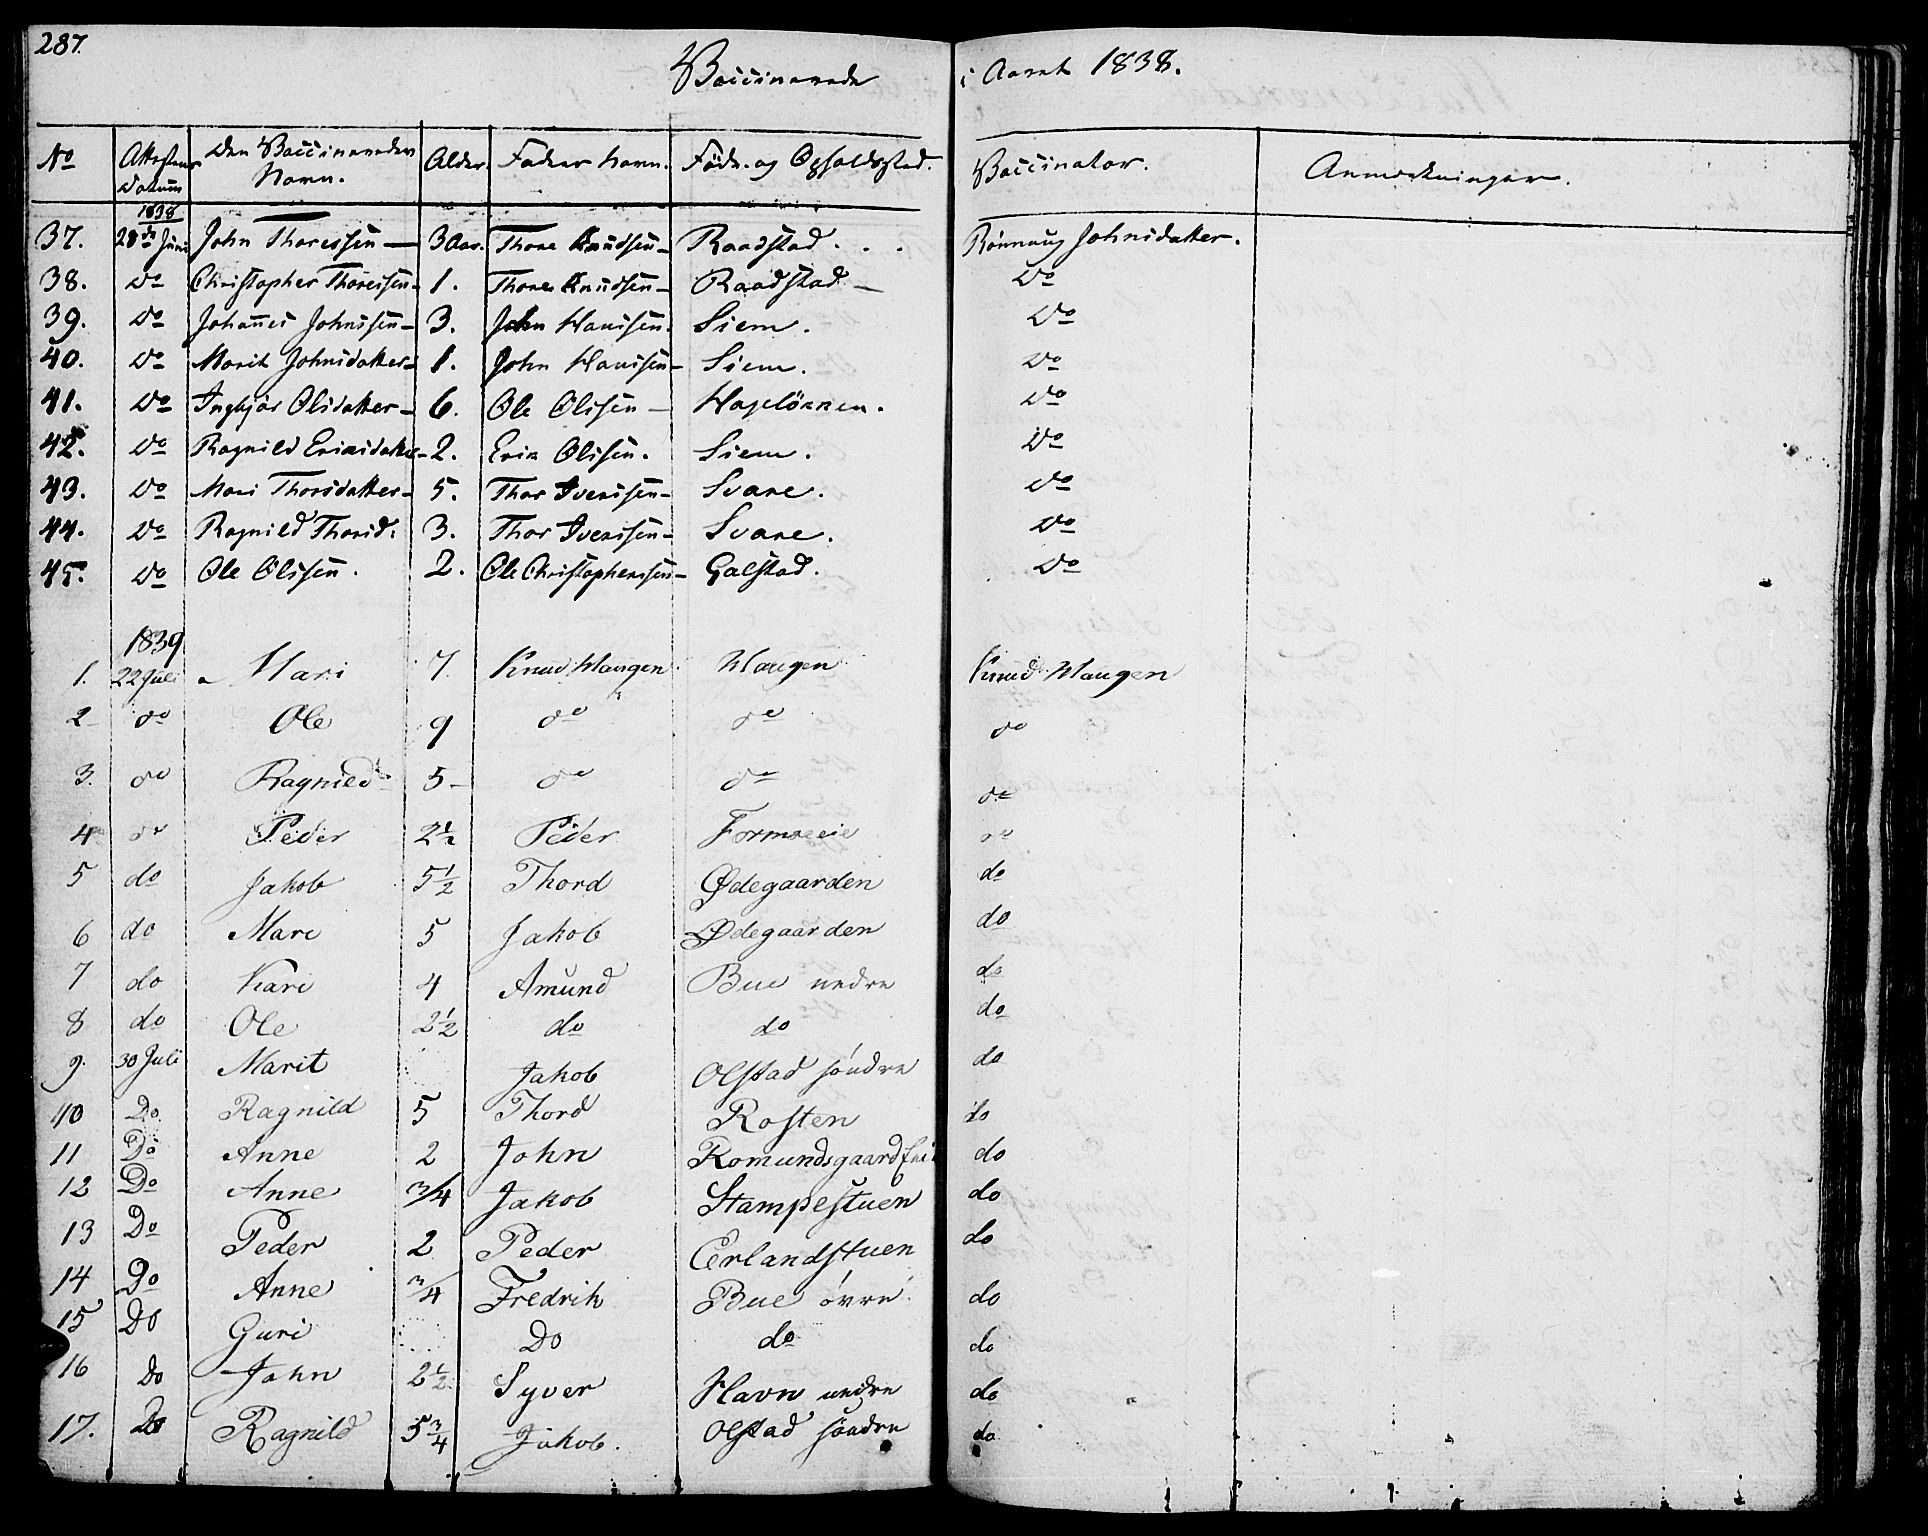 287.
Vaccinerede i Aaret 1838.
No Attestens Datum Den Vaccineredes Navn. Alder. Fadrer Navn. Føde- og Opholdsstad. Vaccinator. Anmærkninger.
1838
37. 28de Juni John Thoressen — 3 Aar. Thore Knudsen — Raadstad . . . Rönnaug Johnsdatter.
38. Do Christopher Thoressen — 1. Thore Knudsen — Raadstad — Do
39. Do Johannes Johnssen — 3. John Hanssen. Siem. Do
40. Do Marit Johnsdatter — 1. John Hanssen — Siem. Do
41. Do Ingbjør Olsdatter — 6. Ole Olssen — Hagelönnen. Do
42. Do Ragnild Ericsdatter — 2. Eric Olssen. Siem. Do
43. Do Mari Thorsdatter — 5. Thor Iverssen — Svare. Do
44. Do Ragnild Thorsd: 3. Thor Iverssen — Svare. Do
45. Do Ole Olssen. 2. Ole Christopherssen — Galstad. Do
1839
1. 22 Juli Mari 7 Knud Haugen Haugen Knud Haugen
2 do Ole 9 do do do
3. do Ragnild 5 do do do
4 do Peder 2½ Peder Formoeeie do
5 do Jakob 5½ Thord Ødegaarden do
6 do Mari 5 Jakob Ødegaarden do
7 do Kari 4 Amund Bue nedre do
8 do Ole 2½ do do do
9. 30 Juli Marit Jakob Olstad söndre do
10 Do Ragnild 5 Thord Rosten do
11 Do Anne 2 John Romundsgaard do
12 Do Anne 3/4 Jakob Stampestuen do
13 Do Peder 2 Peder Erlandstuen do
14 Do Anne 3/4 Fredrik Bue övre do
15 Do Guri Do do do
16 Do John 2½ Syver Havn nedre do
17. Do Ragnild 5¾ Jakob. Olstad söndre do